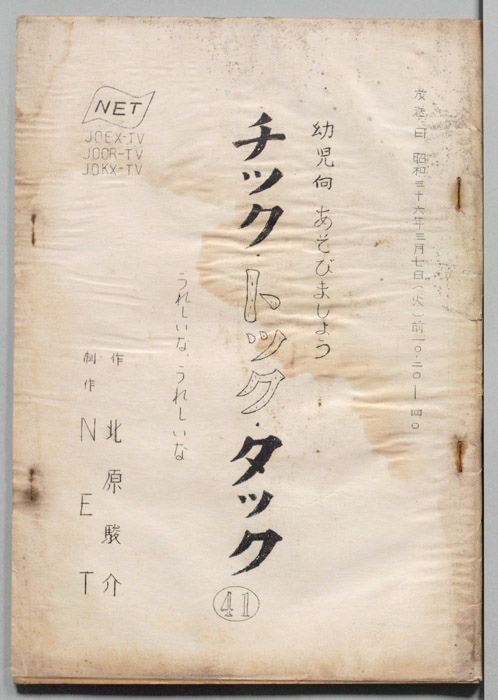 放送日 昭和三十六年三月七日(火)前一〇・二〇―四〇
幼児向 あそびましょう
チック・トック・タック
41
うれしいな、うれしいな
作 北原駿介
制作 NET
NET
JOEX-TV
JOOR-TV
JOKX-TV